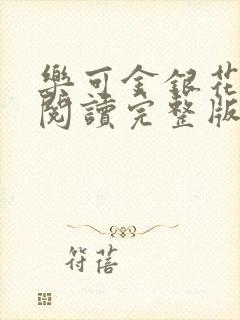 樂可金銀花
閱讀完整版
符蓓